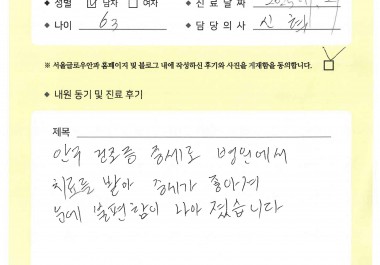 ◆ 성별 ☑ 남자 □ 여자 ◆ 진료날짜
◆ 나이 63 ◆ 담당의사 신
※ 서울글로우안과 홈페이지 및 블로그 내에 작성하신 후기와 사진을 게재함을 동의합니다. ☑
◆ 내원 동기 및 진료 후기
제목
안구 건조증 증세로 병원에서
치료를 받아 증세가 좋아져
눈에 불편함이 나아 졌습니다